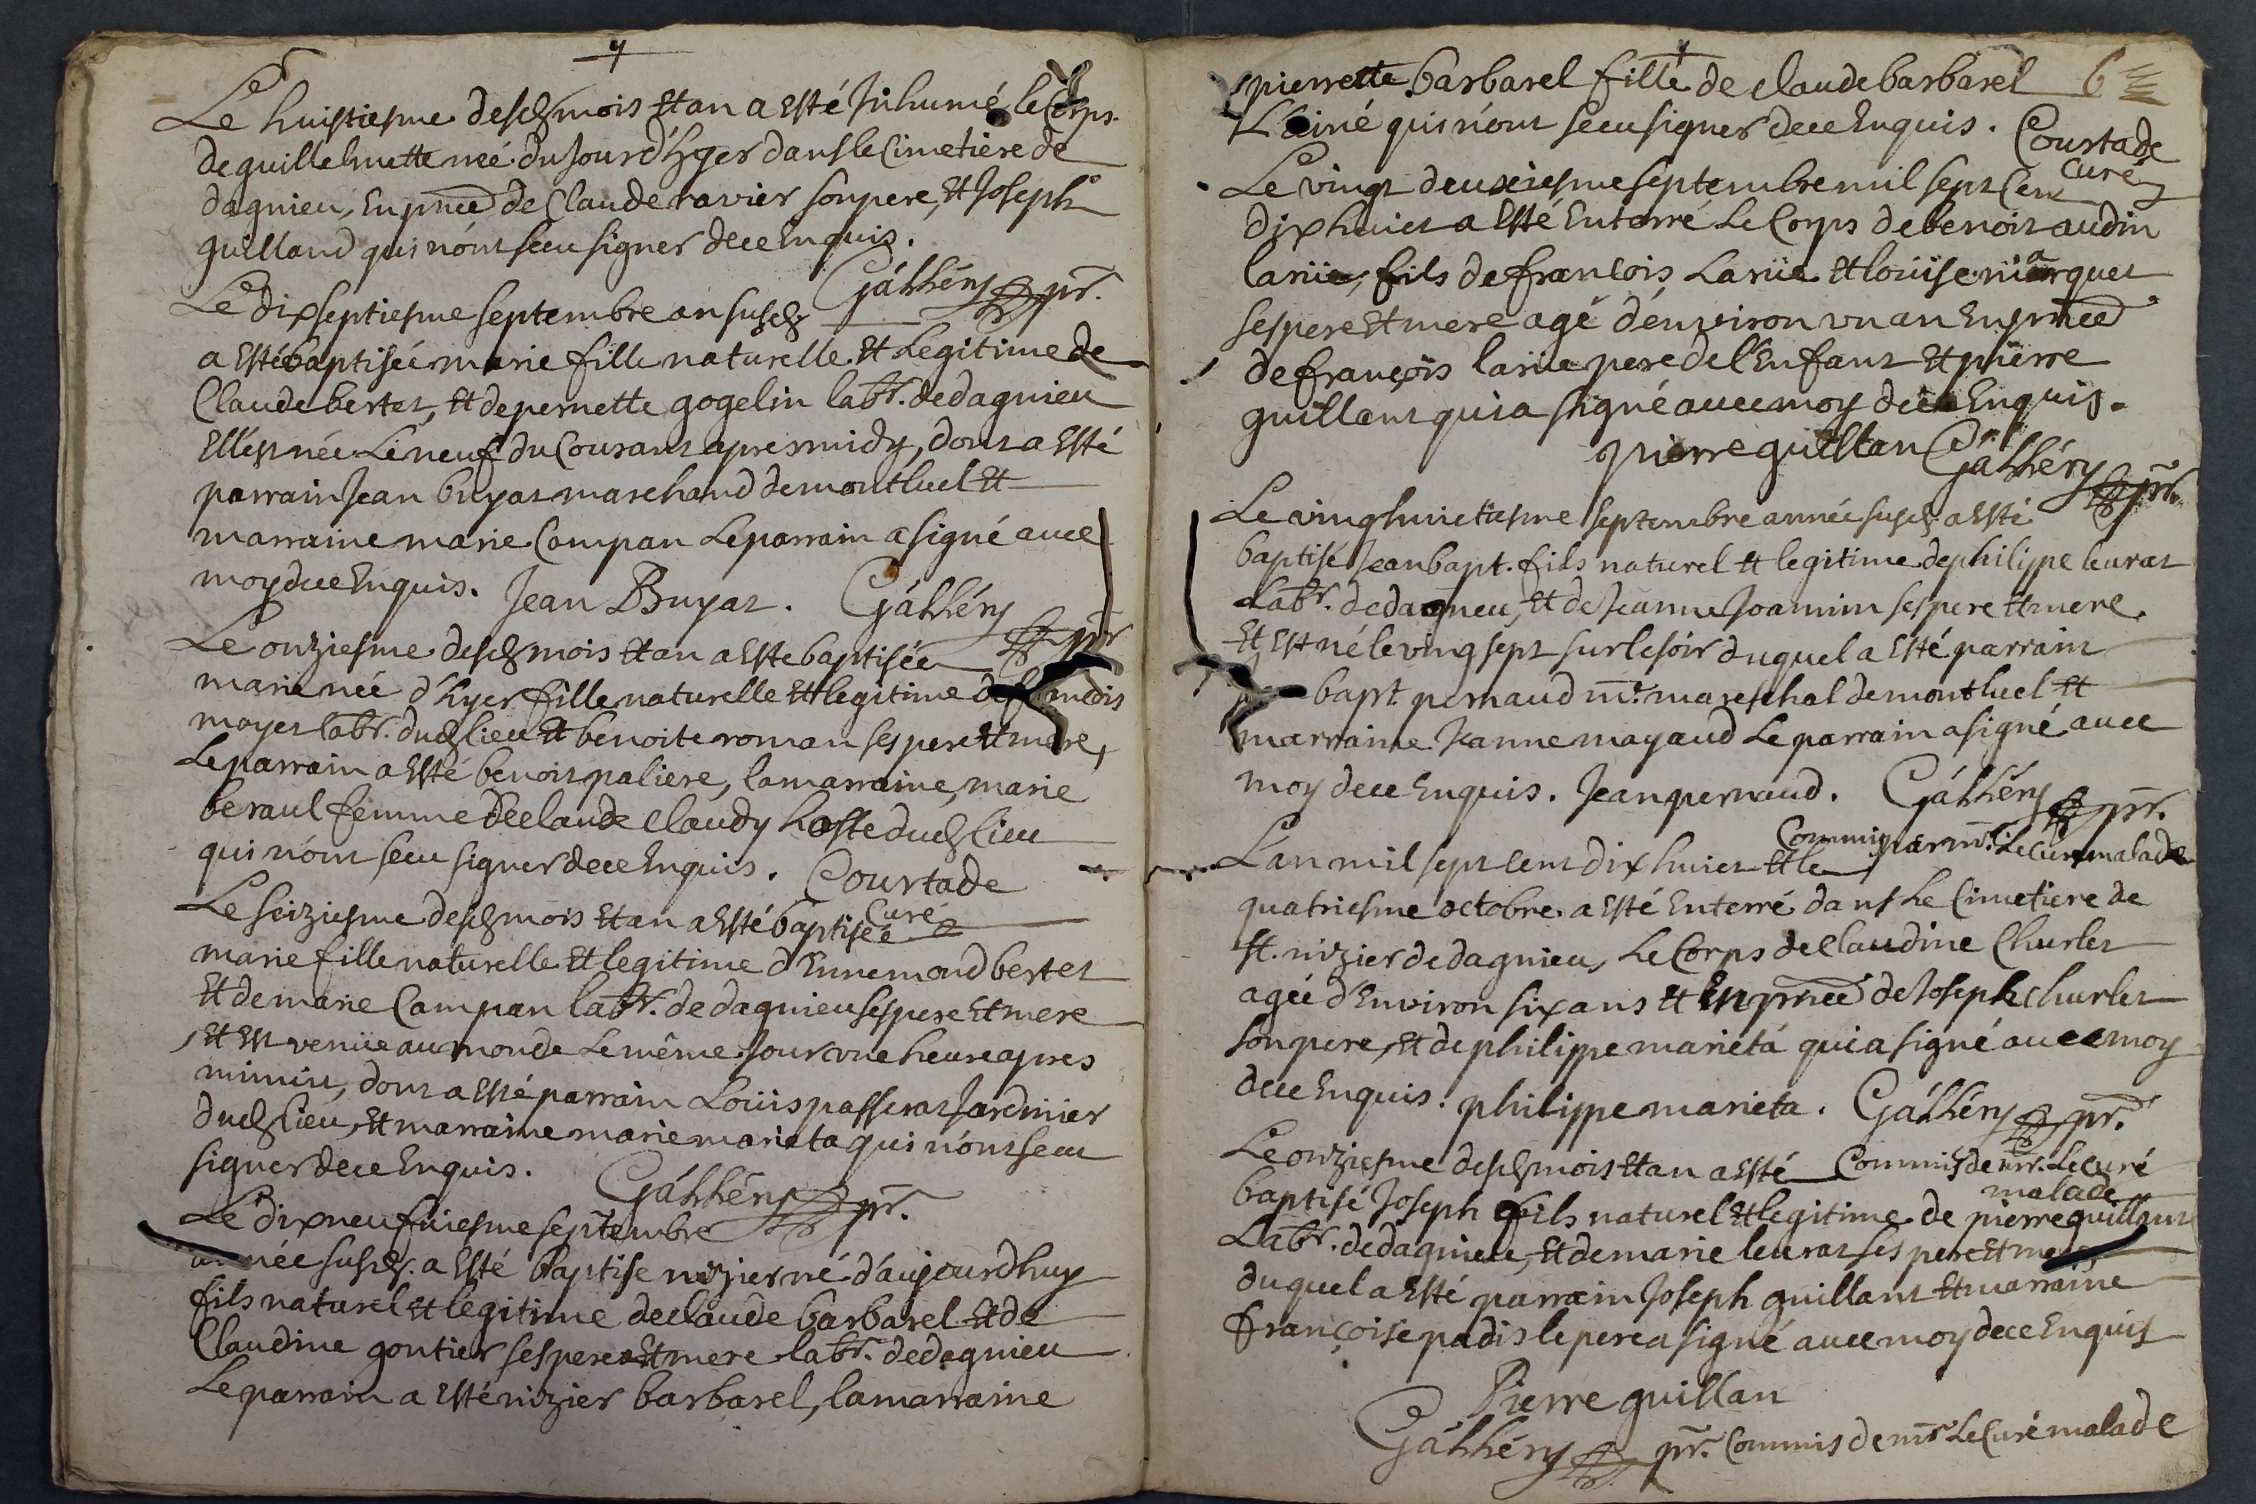 Le huistiesme desd mois et an a esté Inhumé le Corps
de guillelmette née du Jour d'hyer dans le Cimetiere de
dagnieu, En pnce de Claude ravier son pere, et Joseph
guilland qui n'ont sceu signer de ce Enquis.
Gáhhéry pr.
Le dixseptiesme septembre an susd
a esté baptisée marie fille naturelle et Legitime de
Claude bertet, et de pernette gogelin labr. de dagnieu
Ellest née Le neuf du Courant apres midy, dont a esté
parrain Jean buyat marchand de montluel et
marraine marie Compan Le parrain a signé avec
moy de ce Enquis. Jean Buyat. Gáhhéry pr
Le onziesme desd mois et an a este baptisée
marie née d'hyer fille naturelle et legitime de francois
moyet labr. dud lieu et benoite roman ses pere et mere,
Le parrain a esté benoit paliere, la marraine, marie
beraul femme de claude claudy hoste dud lieu
qui n'ont sceu signer de ce Enquis. Courtade
Curé
Le seiziesme desd mois et an a esté baptisée
marie fille naturelle et legitime d'Ennemond bertet
Et de marie Compan labr. de dagnieu ses pere et mere
Et est venüe au monde Le même Jour une heure apres
minuit, dont a esté parrain Loüis passerat Jardinier
dud lieu, et marraine marie marieta qui n'ont sceu
signer de ce Enquis. Gáhhéry pr.
Le dixneufuiesme septembre
année susd. a esté baptise nizier né d'aujourdhuy
fils naturel et legitime de claude barbarel et de
Claudine gontier ses pere et mere labr. de dagnieu
Le parrain a esté nizier barbarel, la marraine
pierrette barbarel fille de claude barbarel 6
L'ainé qui n'ont sceu signer de ce Enquis. Courtade
Curé
Le vingt deuxiesme septembre mil sept Cent
dix huict a esté Enterré Le Corps de benoit audin
larüe, fils de francois Larüe et loüise marquet
ses pere et mere agé d'environ un an En pnce
de françois larüe pere de l'Enfant et pierre
guillant qui a signé avec moy de ce Enquis.
pierre guillan Gáhhéry pr.
Le vinghuictiesme septembre année susd a esté
baptisé Jean bapt. fils naturel et legitime de philippe leurat
Labr. de dagneu, et de Jeanne Joannin ses pere et mere.
Et est né le vingsept sur le soir duquel a esté parrain
bapt. pernaud mr. mareschal de montluel et
marraine Jeanne mayaud Le parrain a signé avec
moy de ce Enquis. Jean pernaud. Gáhhéry pr.
Commis par mr. Le Curé malade
L'an mil sept cent dix huict et le
quatriesme octobre a esté Enterré dans Le Cimetiere de
st. nizier de dagnieu, Le Corps de Claudine Churlet
agée d'Environ six ans et En pnce de Joseph Churlet
son pere, et de philippe marietá qui a signé avec moy
de ce Enquis. philippe marieta. Gáhhéry pr.
Commis de mr. Le Curé
malade
Le onziesme desd mois et an a esté
baptisé Joseph fils naturel et legitime de pierre guillant
Labr. de dagnieu, et de marie leurat ses pere et mere
duquel a esté parrain Joseph guillant et marraine
françoise padis le pere a signé avec moy de ce Enquis
Pierre guillan
Gáhhéry pr. Commis de mr Le Curé malade